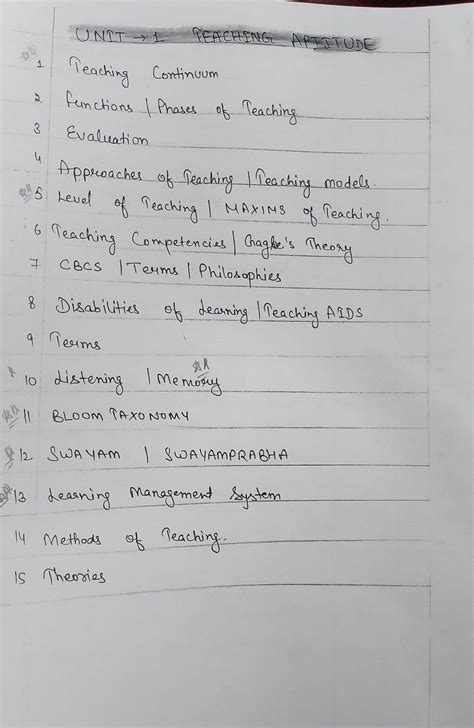 UNIT → 1 TEACHING APTITUDE
1 Teaching Continuum
2 Functions | Phases of Teaching
3 Evaluation
4 Approaches of Teaching | Teaching models.
5 Level of Teaching | MAXIMS of Teaching.
6 Teaching Competencies | Gagne's Theory
7 CBCS | Terms | Philosophies
8 Disabilities of Learning | Teaching AIDS
9 Terms
10 Listening | Memory
11 BLOOM TAXONOMY
12 SWAYAM | SWAYAMPRABHA
13 Learning Management System
14 Methods of Teaching.
15 Theories